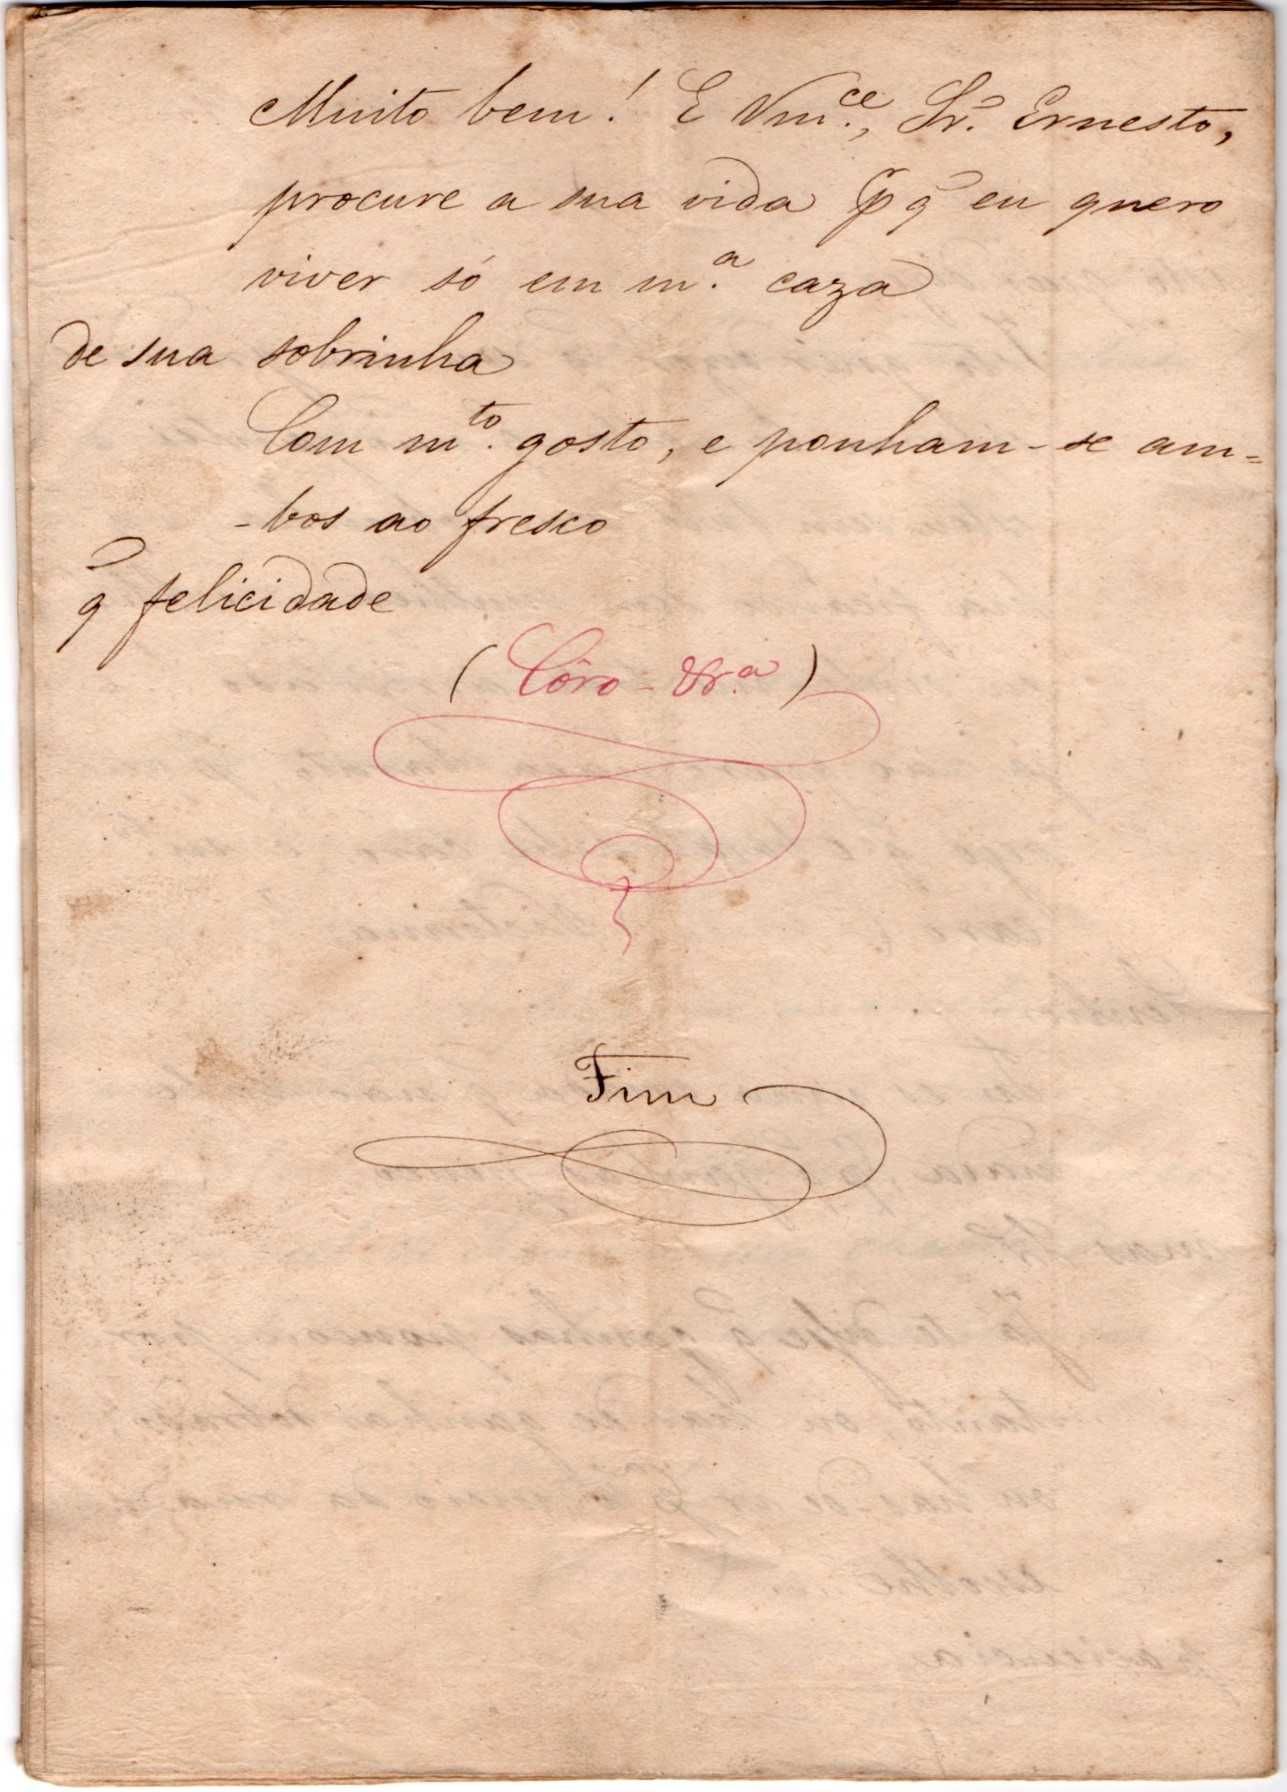 Muito bem! E Vm.ce, Sr. Ernesto,
procure a sua vida pq̃ eu quero
viver só em m.a caza
de sua sobrinha
Com m.to gosto, e ponham-se am-
-bos ao fresco
q̃ felicidade
(Côro - &.a)
Fim